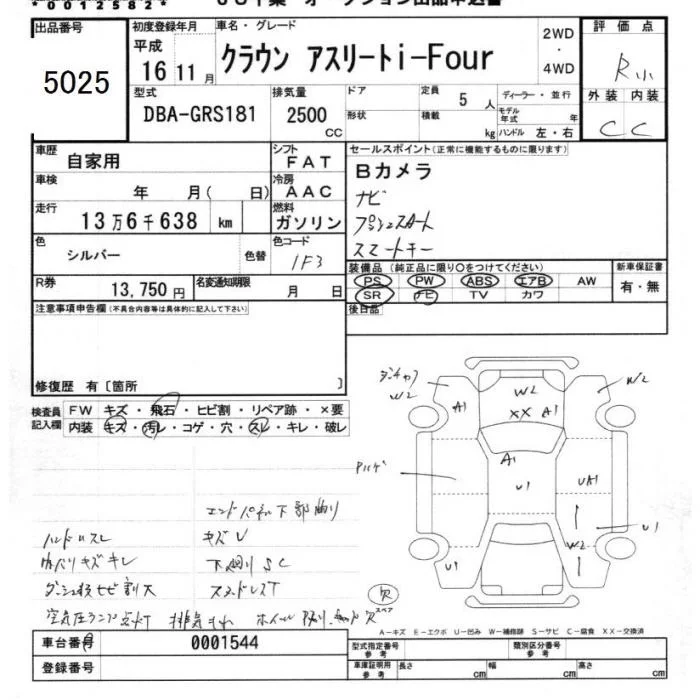 *00012582*
出品番号
5025
初度登録年月
平成
16 11 月
車名・グレード
クラウン アスリートi-Four
2WD
・
4WD
評価点
R小
外装 内装
C C
型式
DBA-GRS181
排気量
2500
CC
ドア
形状
定員
5 人
積載
kg
ディーラー・並行
モデル年式 年
ハンドル 左・右
車歴
自家用
シフト
FAT
車検
年 月( 日)
冷房
AAC
走行
13万6千638 km
燃料
ガソリン
色
シルバー
色替
色コード
1F3
R券
13,750 円
名変通知期限
月 日
セールスポイント(正常に機能するものに限ります)
Bカメラ
ナビ
プッシュスタート
スマートキー
装備品 (純正品に限り○をつけてください)
PS PW ABS エアB AW
SR ナビ TV カワ
新車保証書
有・無
後日品
注意事項申告欄(不具合内容等は具体的に記入して下さい)
修復歴 有〔箇所 〕
検査員記入欄
FW キズ・飛石・ヒビ割・リペア跡・×要
内装 キズ・汚レ・コゲ・穴・スレ・キレ・破レ
W2
A1
W2
XX A1
W2
A1
U1
UA1
U1
W2
U1
欠
スペア
エンドパネル下部曲り
ハンドルスレ
キズU
内ハリキズキレ
下廻りSC
スタッドレスT
空気圧ランプ点灯
A-キズ E-エクボ U-凹み W-補修跡 S-サビ C-腐食 XX-交換済
車台番号
0001544
登録番号
型式指定番号
参考
類別区分番号
参考
車庫証明用
参考
長さ cm
幅 cm
高さ cm